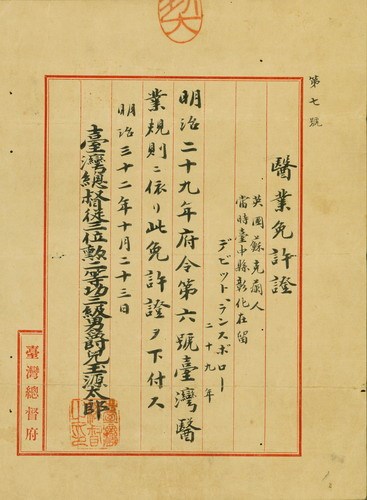 第七號
醫業免許證
英國蘇克蘭人
當時臺中縣彰化在留
デビットランスボロー
二十九年
明治二十九年府令第六號臺灣醫
業規則ニ依リ此免許證ヲ下付ス
明治三十二年十月二十三日
臺灣總督從三位勲二等功三級男爵兒玉源太郎
臺灣總督府